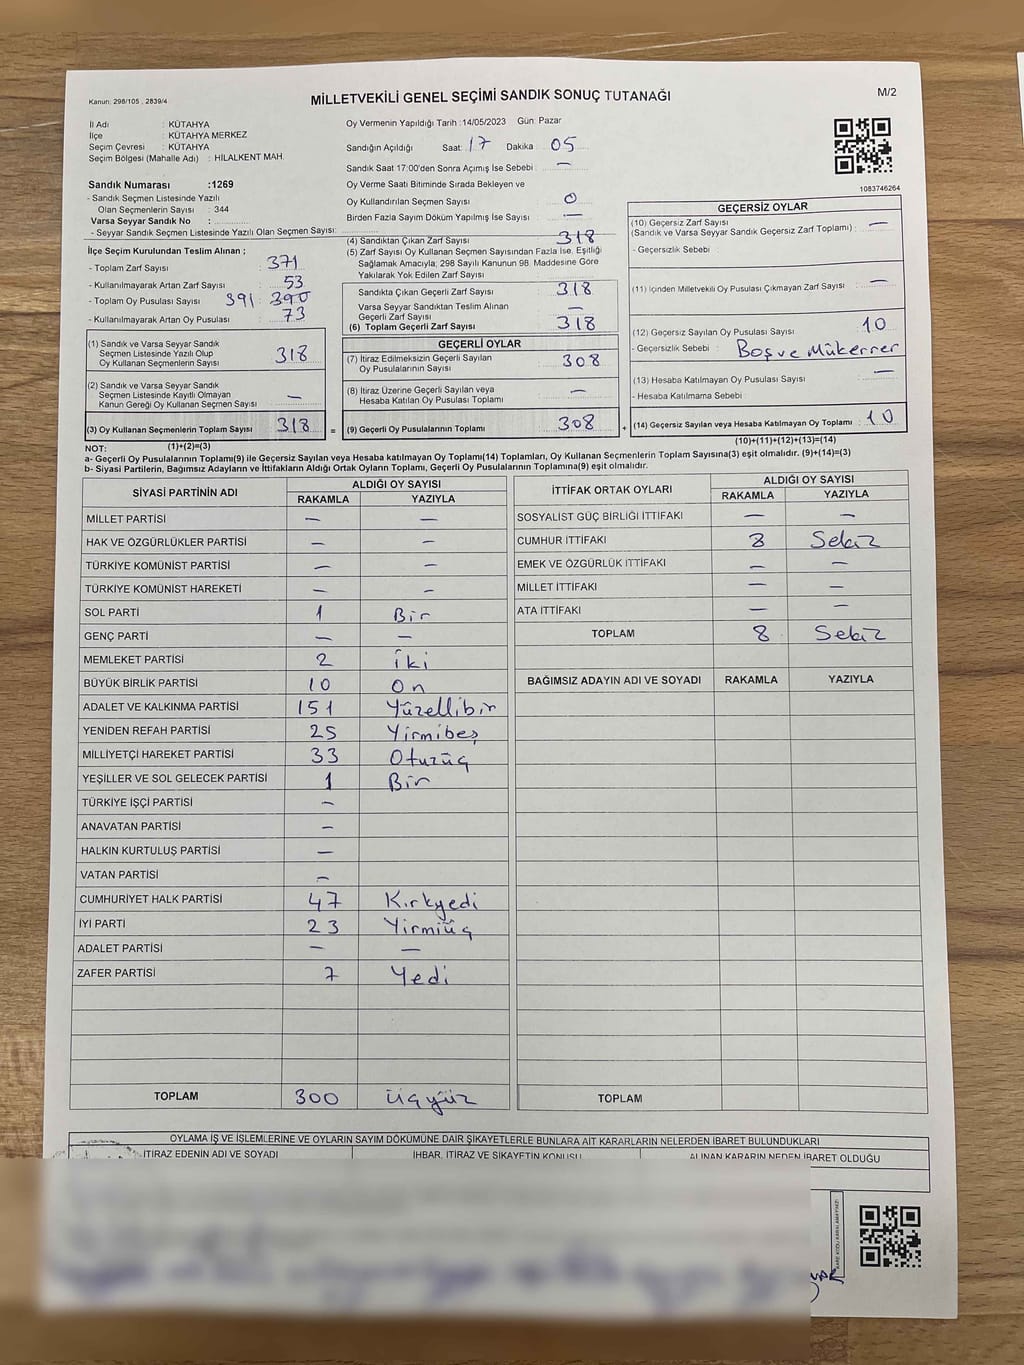 Kanun: 298/105 , 2839/4
MİLLETVEKİLİ GENEL SEÇİMİ SANDIK SONUÇ TUTANAĞI
M/2
İl Adı : KÜTAHYA
İlçe : KÜTAHYA MERKEZ
Seçim Çevresi : KÜTAHYA
Seçim Bölgesi (Mahalle Adı) : HİLALKENT MAH.
Sandık Numarası :1269
- Sandık Seçmen Listesinde Yazılı
Olan Seçmenlerin Sayısı : 344
Varsa Seyyar Sandık No :
- Seyyar Sandık Seçmen Listesinde Yazılı Olan Seçmen Sayısı:
Oy Vermenin Yapıldığı Tarih :14/05/2023 Gün: Pazar
Sandığın Açıldığı Saat: 17 Dakika 05
Sandık Saat 17:00'den Sonra Açımış İse Sebebi : —
Oy Verme Saati Bitiminde Sırada Bekleyen ve
Oy Kullandırılan Seçmen Sayısı : 0
Birden Fazla Sayım Döküm Yapılmış İse Sayısı : —
1083746264
İlçe Seçim Kurulundan Teslim Alınan ;
- Toplam Zarf Sayısı : 371
- Kullanılmayarak Artan Zarf Sayısı : 53
- Toplam Oy Pusulası Sayısı 391 : 390
- Kullanılmayarak Artan Oy Pusulası : 73
(1) Sandık ve Varsa Seyyar Sandık
Seçmen Listesinde Yazılı Olup
Oy Kullanan Seçmenlerin Sayısı 318
(2) Sandık ve Varsa Seyyar Sandık
Seçmen Listesinde Kayıtlı Olmayan
Kanun Gereği Oy Kullanan Seçmen Sayısı —
(3) Oy Kullanan Seçmenlerin Toplam Sayısı 318 =
(4) Sandıktan Çıkan Zarf Sayısı 318
(5) Zarf Sayısı Oy Kullanan Seçmen Sayısından Fazla İse, Eşitliği
Sağlamak Amacıyla; 298 Sayılı Kanunun 98. Maddesine Göre
Yakılarak Yok Edilen Zarf Sayısı
Sandıkta Çıkan Geçerli Zarf Sayısı 318
Varsa Seyyar Sandıktan Teslim Alınan
Geçerli Zarf Sayısı —
(6) Toplam Geçerli Zarf Sayısı 318
GEÇERLİ OYLAR
(7) İtiraz Edilmeksizin Geçerli Sayılan
Oy Pusulalarının Sayısı 308
(8) İtiraz Üzerine Geçerli Sayılan veya
Hesaba Katılan Oy Pusulası Toplamı —
(9) Geçerli Oy Pusulalarının Toplamı 308 +
GEÇERSİZ OYLAR
(10) Geçersiz Zarf Sayısı
(Sandık ve Varsa Seyyar Sandık Geçersiz Zarf Toplamı) : —
- Geçersizlik Sebebi
(11) İçinden Milletvekili Oy Pusulası Çıkmayan Zarf Sayısı : —
(12) Geçersiz Sayılan Oy Pusulası Sayısı : 10
- Geçersizlik Sebebi : Boş ve Mükerrer
(13) Hesaba Katılmayan Oy Pusulası Sayısı : —
- Hesaba Katılmama Sebebi
(14) Geçersiz Sayılan veya Hesaba Katılmayan Oy Toplamı : 10
(1)+(2)=(3)
(10)+(11)+(12)+(13)=(14)
NOT:
a- Geçerli Oy Pusulalarının Toplamı(9) ile Geçersiz Sayılan veya Hesaba katılmayan Oy Toplamı(14) Toplamları, Oy Kullanan Seçmenlerin Toplam Sayısına(3) eşit olmalıdır. (9)+(14)=(3)
b- Siyasi Partilerin, Bağımsız Adayların ve İttifakların Aldığı Ortak Oyların Toplamı, Geçerli Oy Pusulalarının Toplamına(9) eşit olmalıdır.
SİYASİ PARTİNİN ADI ALDIĞI OY SAYISI
RAKAMLA YAZIYLA
MİLLET PARTİSİ — —
HAK VE ÖZGÜRLÜKLER PARTİSİ — —
TÜRKİYE KOMÜNİST PARTİSİ — —
TÜRKİYE KOMÜNİST HAREKETİ — —
SOL PARTİ 1 Bir
GENÇ PARTİ — —
MEMLEKET PARTİSİ 2 İki
BÜYÜK BİRLİK PARTİSİ 10 On
ADALET VE KALKINMA PARTİSİ 151 Yüzellibir
YENİDEN REFAH PARTİSİ 25 Yirmibeş
MİLLİYETÇİ HAREKET PARTİSİ 33 Otuzüç
YEŞİLLER VE SOL GELECEK PARTİSİ 1 Bir
TÜRKİYE İŞÇİ PARTİSİ —
ANAVATAN PARTİSİ —
HALKIN KURTULUŞ PARTİSİ —
VATAN PARTİSİ —
CUMHURİYET HALK PARTİSİ 47 Kırkyedi
İYİ PARTİ 23 Yirmiüç
ADALET PARTİSİ — —
ZAFER PARTİSİ 7 Yedi
TOPLAM 300 üçyüz
İTTİFAK ORTAK OYLARI ALDIĞI OY SAYISI
RAKAMLA YAZIYLA
SOSYALİST GÜÇ BİRLİĞİ İTTİFAKI — —
CUMHUR İTTİFAKI 8 Sekiz
EMEK VE ÖZGÜRLÜK İTTİFAKI — —
MİLLET İTTİFAKI — —
ATA İTTİFAKI — —
TOPLAM 8 Sekiz
BAĞIMSIZ ADAYIN ADI VE SOYADI RAKAMLA YAZIYLA
TOPLAM
OYLAMA İŞ VE İŞLEMLERİNE VE OYLARIN SAYIM DÖKÜMÜNE DAİR ŞİKAYETLERLE BUNLARA AİT KARARLARIN NELERDEN İBARET BULUNDUKLARI
İTİRAZ EDENİN ADI VE SOYADI İHBAR, İTİRAZ VE ŞİKAYETİN KONUSU ALINAN KARARIN NEDEN İBARET OLDUĞU
KARE KODU KARALAMAYINIZ!